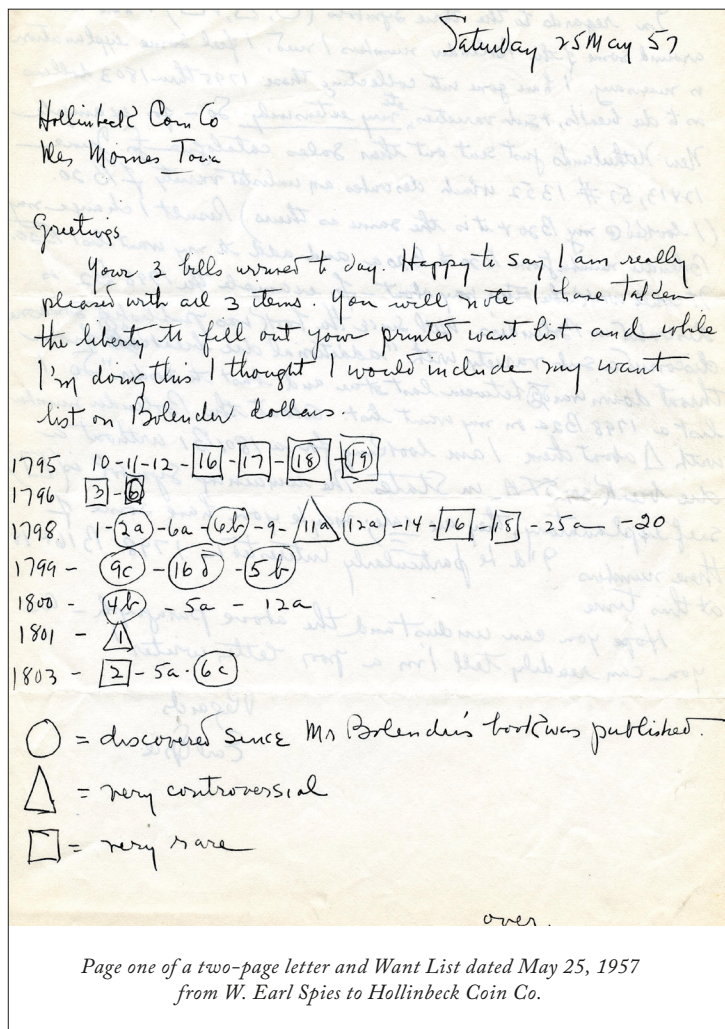 Saturday 25 May 57
Hollinbeck Coin Co
Des Moines Iowa
Greetings
Your 3 bills arrived to day. Happy to say I am really
pleased with all 3 items. You will note I have taken
the liberty to fill out your printed want list and while
I'm doing this I thought I would include my want
list on Bolender dollars.
1795 10-11-12-16-17-18-19
1796 3-6
1798 1-2a-6a-6b-9-11a 12a-14-16-18-25a-20
1799 - 9c-16δ-5b
1800 - 4b - 5a - 12a
1801 - 1
1803 - 2 - 5a. 6c
= discovered since Mr Bolender's book was published.
= very controversial
= very rare
over.
Page one of a two-page letter and Want List dated May 25, 1957
from W. Earl Spies to Hollinbeck Coin Co.